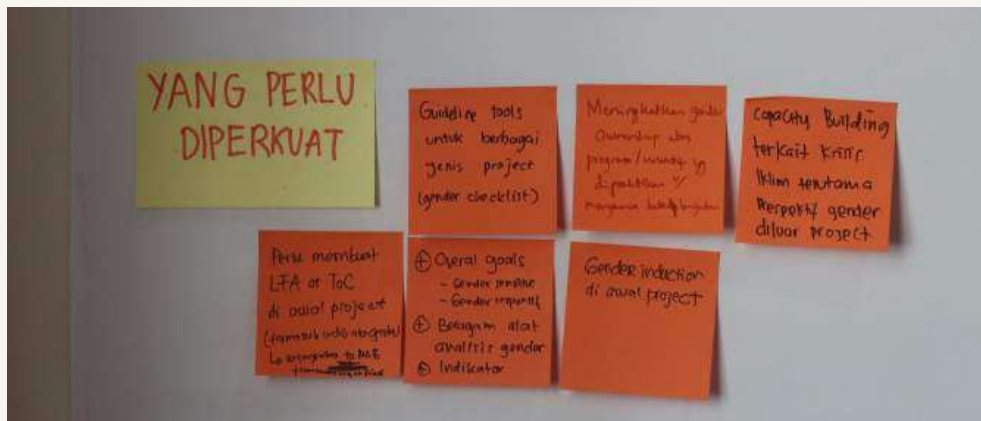 YANG PERLU
DIPERKUAT
Guideline tools
untuk berbagai
jenis project
(gender checklist)
Meningkatkan gender
Ownership atas
program/
dipastikan
Capacity Building
terkait krisis
iklim terutama
Perspektif gender
diluar project
Perlu membuat
LFA or ToC
di awal project
(termasuk
+ Overal goals
- Gender sensitive
- Gender responsif
+ Beragam alat
analisis gender
+ Indikator
Gender induction
di awal project